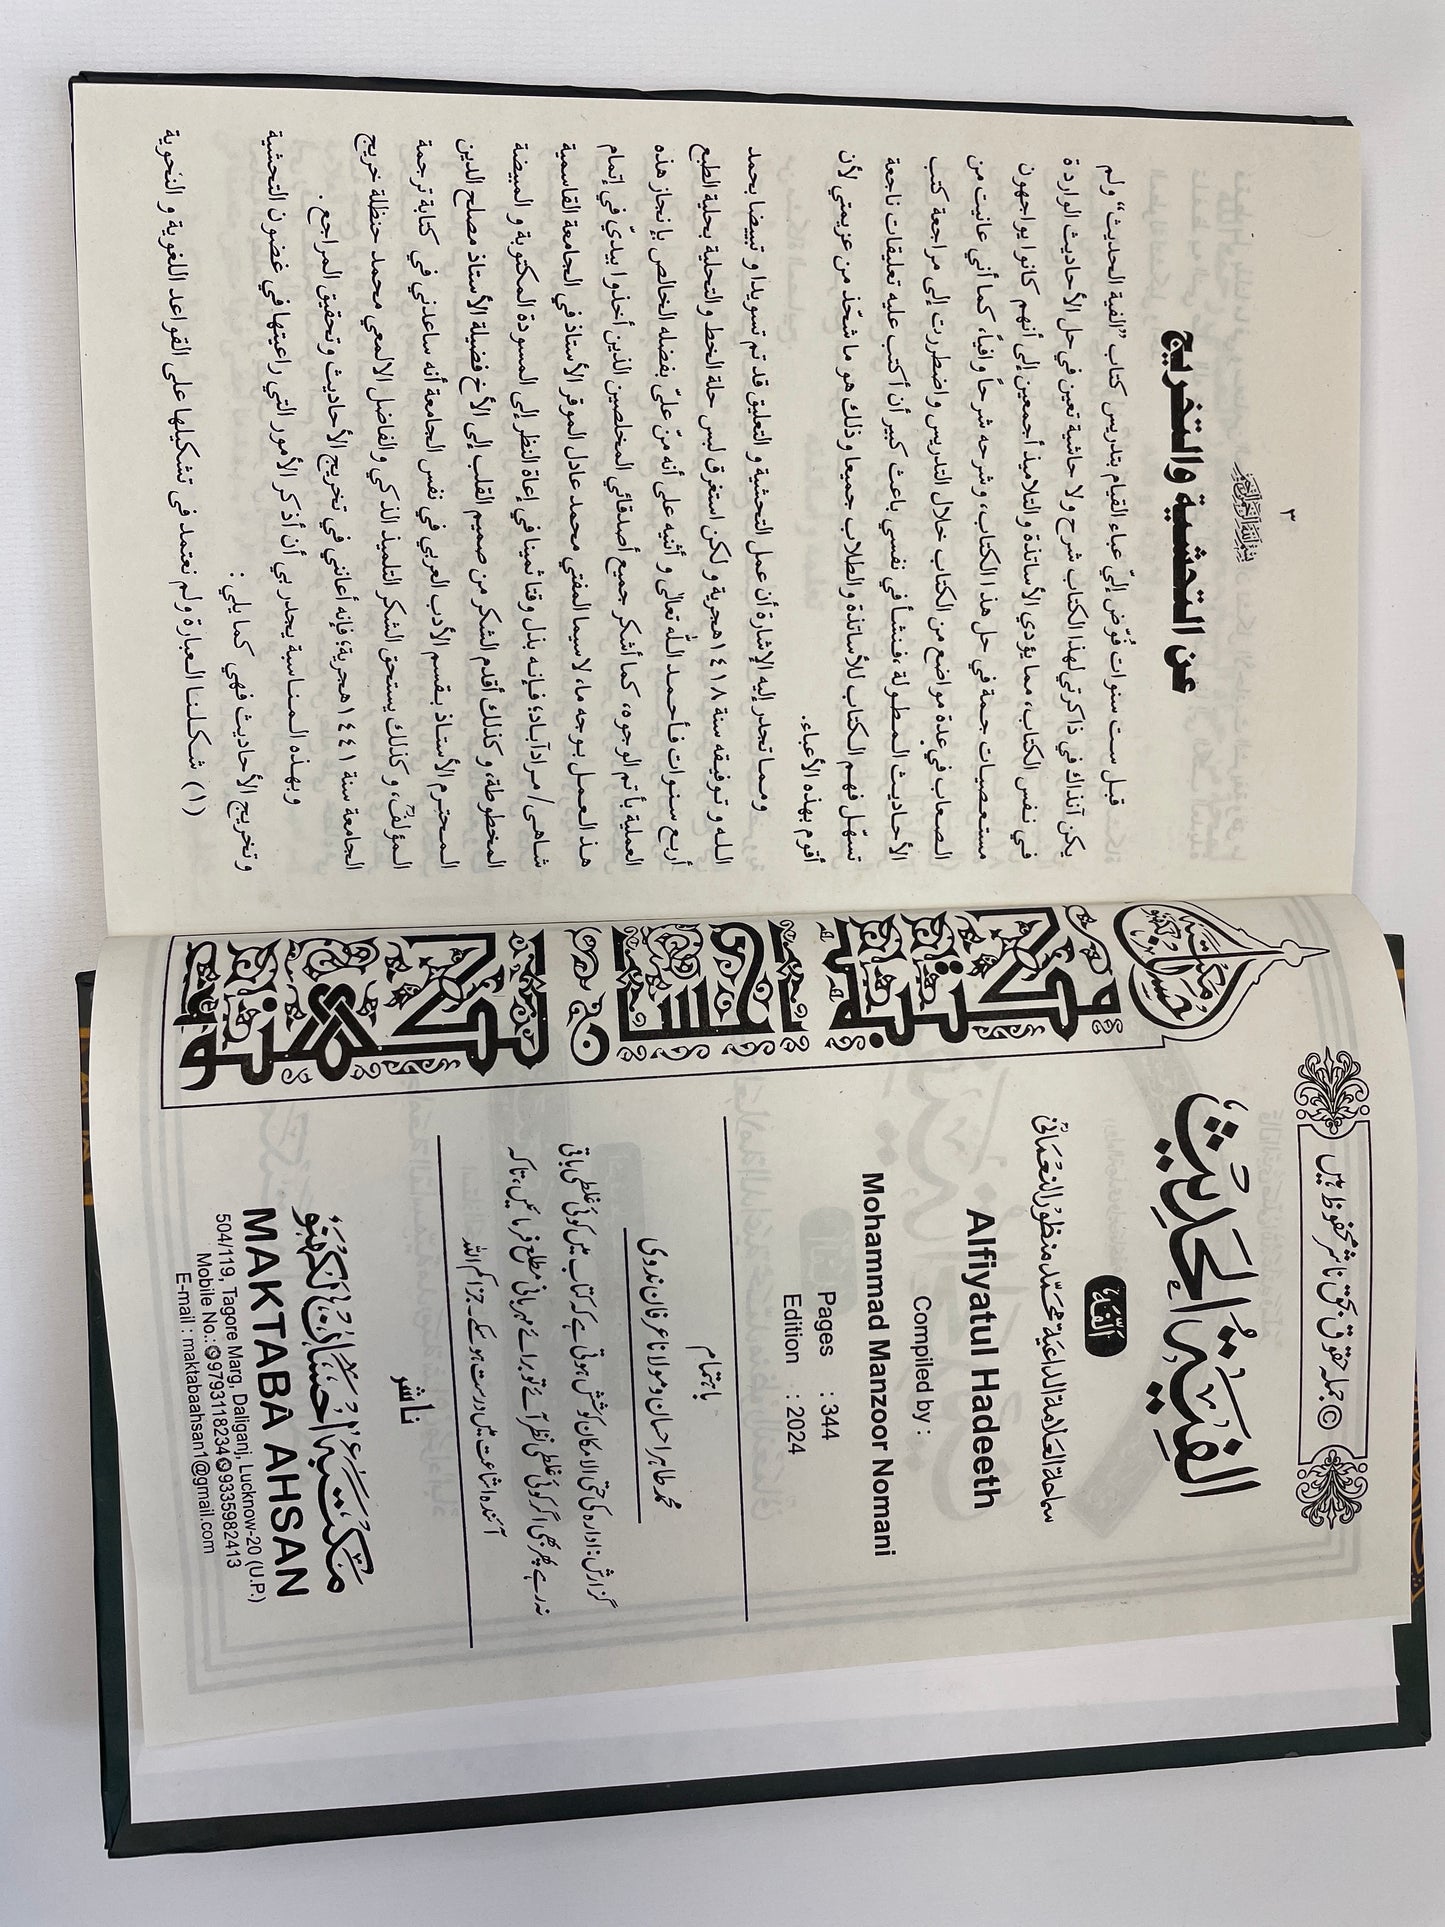 © جملہ حقوق بحق ناشر محفوظ ہیں
الفية الحديث
ألفية
سماحة العلامة الداعية محمد منظور النعماني
Alfiyatul Hadeeth
Compiled by :
Mohammad Manzoor Nomani
Pages : 344
Edition : 2024
باہتمام
محمد طاہر احسان و مولانا عرفان ندوی
گزارش: ادارہ کی حتی الامکان کوشش ہوتی ہے کہ کتاب میں کوئی غلطی باقی
نہ رہے پھر بھی اگر کوئی غلطی نظر آئے تو برائے مہربانی مطلع فرمائیں، تاکہ
آئندہ اشاعت میں درست ہو سکے۔ جزاکم اللہ
ناشر
مكتبة احسان لكهنؤ
MAKTABA AHSAN
504/119, Tagore Marg, Daliganj, Lucknow-20 (U.P.)
Mobile No.: 9793118234 9335982413
E-mail : maktabaahsan1@gmail.com
مكتبة احسان لكهنؤ
٣
بسم الله الرحمن الرحيم
عن التحشية والتخريج
قبل ست سنوات فُوّض إليّ عباء القيام بتدريس كتاب "الفية الحديث" ولم
يكن آنذاك في ذاكرتي لهذا الكتاب شرح ولا حاشية تعين في حل الأحاديث الواردة
في نفس الكتاب، مما يؤدي الأساتذة والتلاميذ أجمعين إلى أنهم كانوا يواجهون
مستعصيات جمة في حل هذا الكتاب، وشرحه شرحاً وافياً، كما أني عانيت من
الصعاب في عدة مواضع من الكتاب خلال التدريس واضطررت إلى مراجعة كتب
الأحاديث المطولة، فنشأ في نفسي باعث كبير أن أكتب عليه تعليقات ناجعة
تسهّل فهم الكتاب للأساتذة والطلاب جميعا وذلك هو ما شحّذ من عزيمتي لأن
أقوم بهذه الأعباء.
ومما تجدر إليه الإشارة أن عمل التحشية و التعليق قد تم تسويدا و تبييضا بحمد
الله و توفيقه سنة ١٤١٨ هجرية و لكن استغرق لبس حلة الخط و التحلية بحلية الطبع
أربع سنوات فأحمد الله تعالى و أثنيه على أنه منّ عليّ بفضله الخالص بإنجاز هذه
العملية بأتم الوجوه، كما أشكر جميع أصدقائي المخلصين الذين أخذوا بيديّ في إتمام
هذا العمل بوجه ما، لا سيما المفتي محمد عادل الموقر الأستاذ في الجامعة القاسمية
شاهي/ مرادآباد؛ فإنه بذل وقتا ثمينا في إعاة النظر إلى المسودة المكتوبة و المبيضة
المخطوطة، و كذلك أقدم الشكر من صميم القلب إلى الأخ فضيلة الأستاذ مصلح الدين
المحترم الأستاذ بقسم الأدب العربي في نفس الجامعة أنه ساعدني في كتابة ترجمة
المؤلفؒ، و كذلك يستحق الشكر التلميذ الذكي والفاضل الالمعي محمد حنظلة خريج
الجامعة سنة ١٤٤١ هجرية؛ فإنه أعانني في تخريج الأحاديث و تحقيق المراجع.
وبهذه المناسبة يجدر بي أن أذكر الأمور التي راعيتها في غضون التحشية
و تخريج الأحاديث فهي كما يلي :
(١) شكلنا العبارة ولم نعتمد في تشكيلها على القواعد اللغوية و النحوية